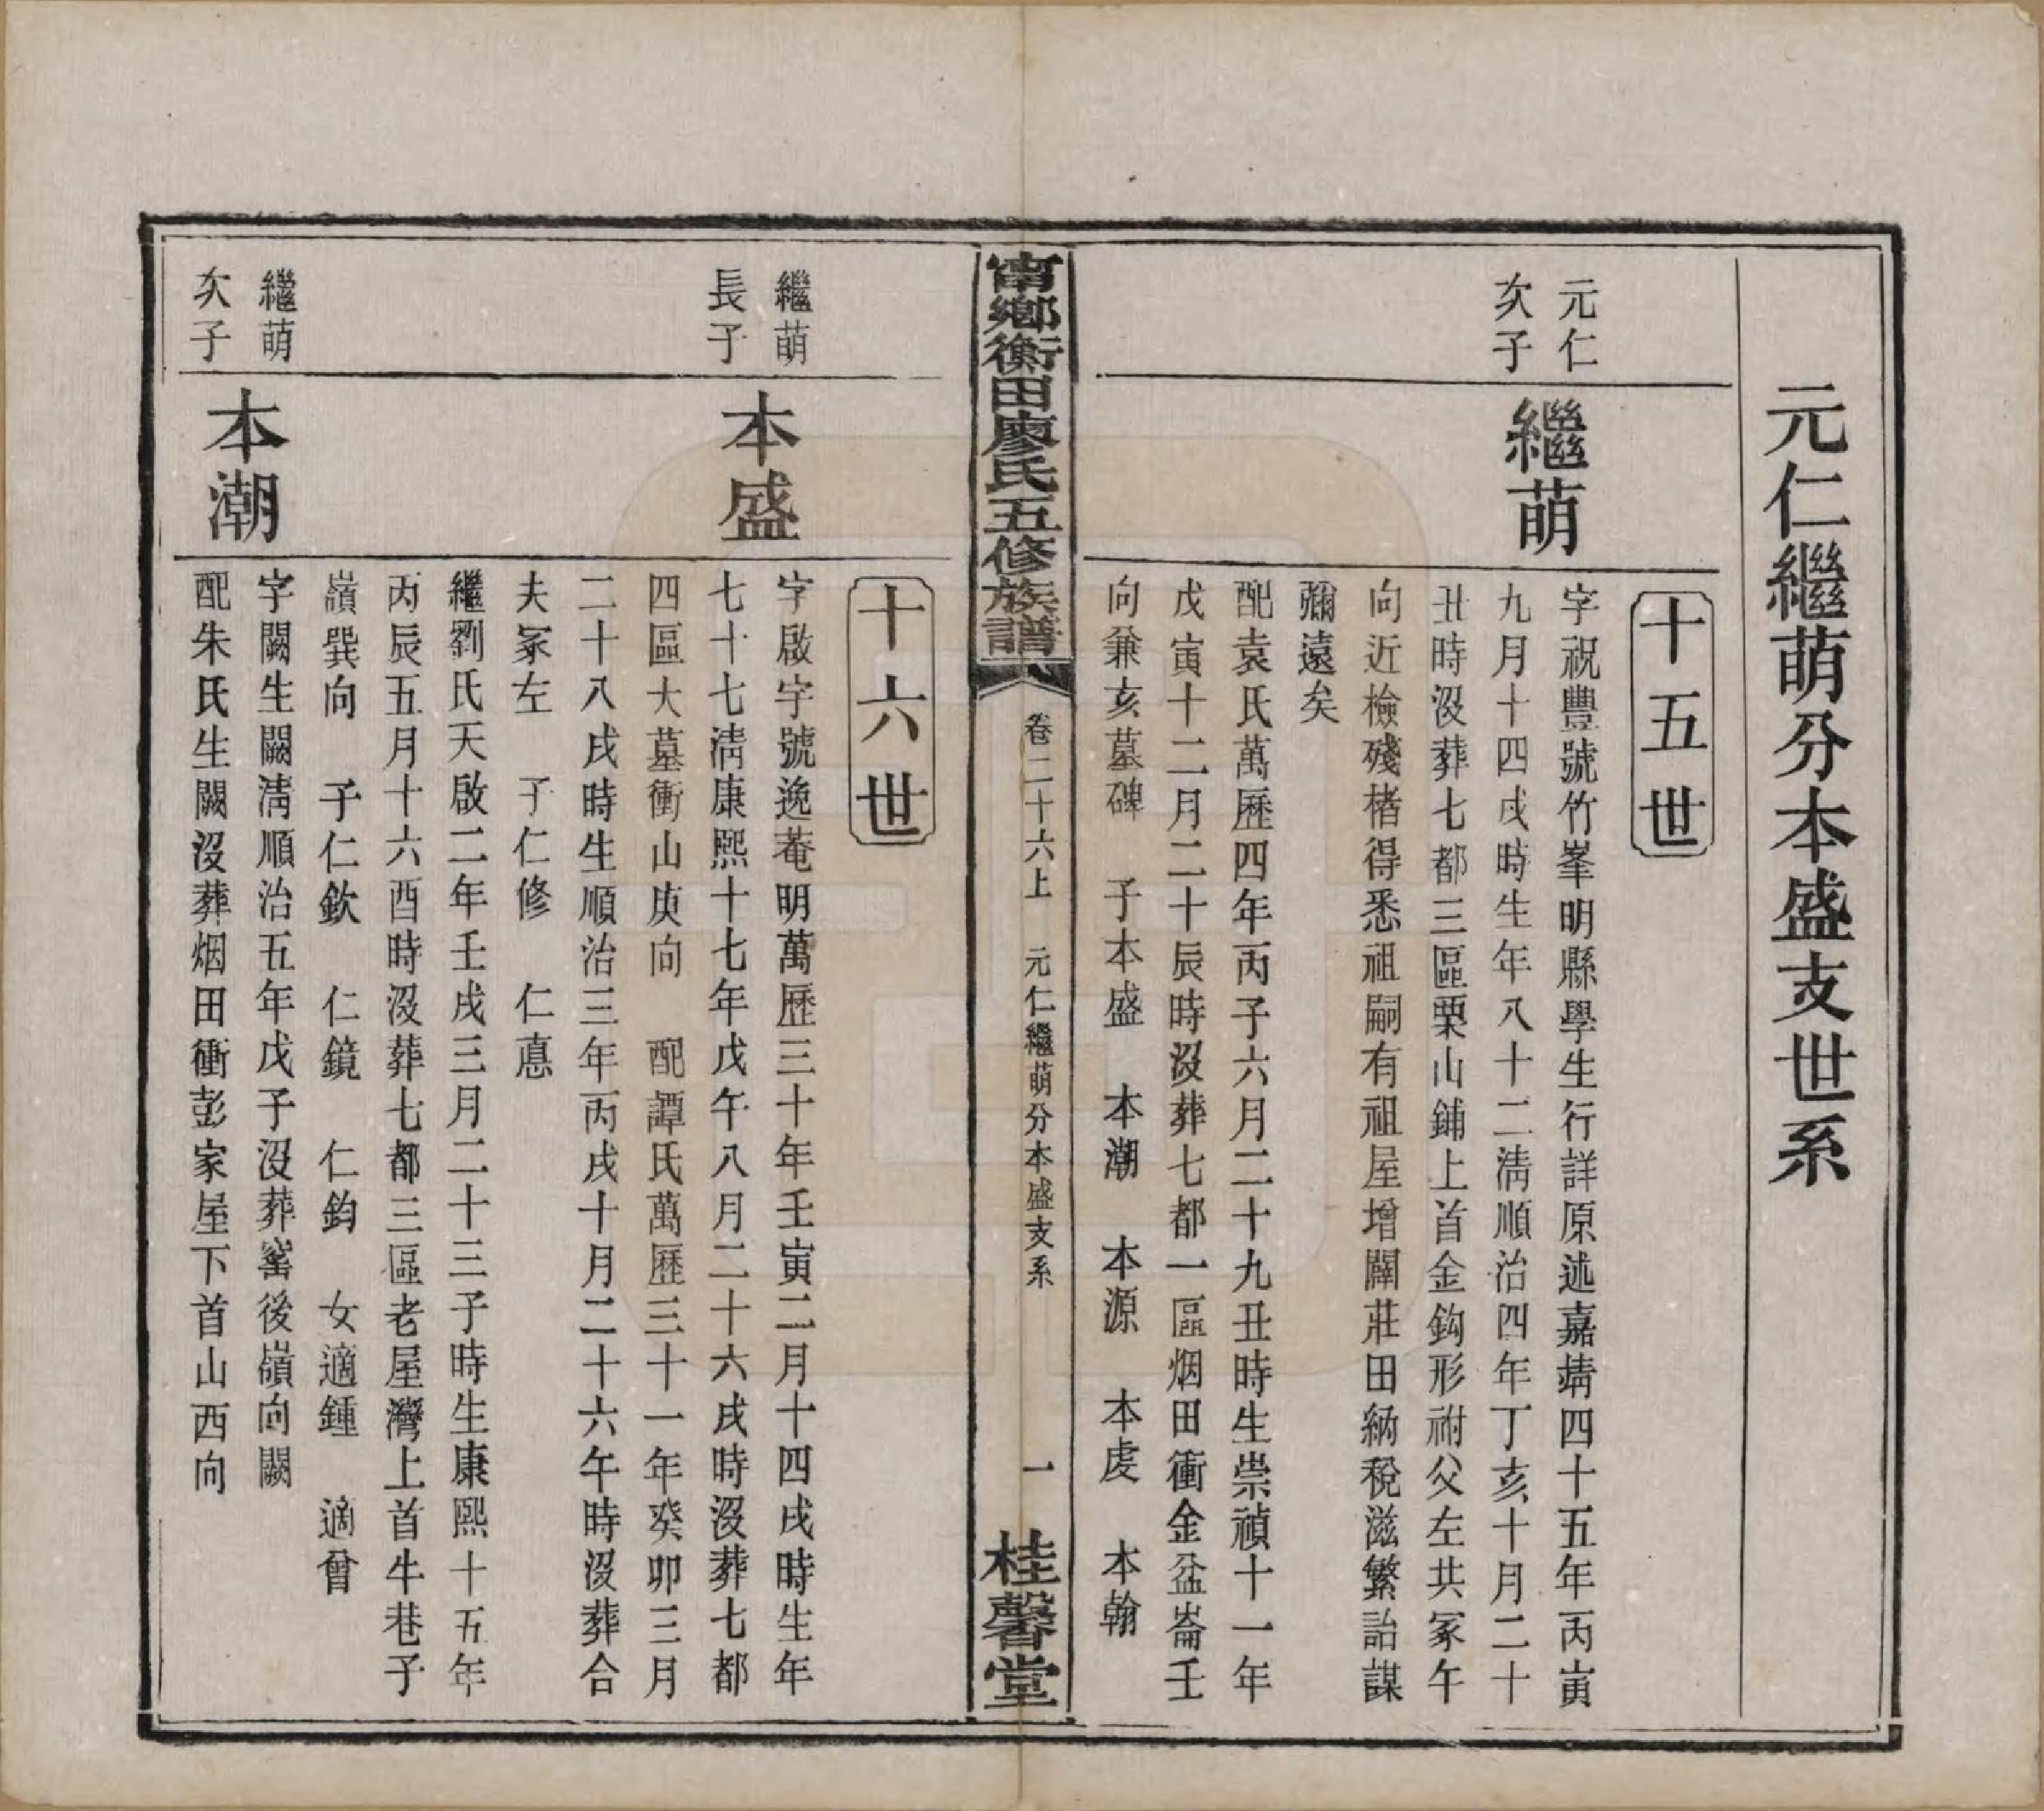 元仁繼萌分本盛支世系
十五世
元仁
次子
繼萌
字祝豐號竹峯明縣學生行詳原述嘉靖四十五年丙寅
九月十四戌時生年八十二清順治四年丁亥十月二十
丑時沒葬七都三區栗山鋪上首金鈎形祔父左共冢午
向近檢殘楮得悉祖嗣有祖屋增闢莊田納稅滋繁詒謀
彌遠矣
配袁氏萬歷四年丙子六月二十九丑時生崇禎十一年
戊寅十二月二十辰時沒葬七都一區烟田衝金盆崙壬
向兼亥墓碑 子本盛 本潮 本源 本虔 本翰
甯鄉衡田廖氏五修族譜
卷二十六上 元仁繼萌分本盛支系
一
桂馨堂
十六世
繼萌
長子
本盛
字啟宇號逸菴明萬歷三十年壬寅二月十四戌時生年
七十七清康熙十七年戊午八月二十六戌時沒葬七都
四區大墓衝山庚向 配譚氏萬歷三十一年癸卯三月
二十八戌時生順治三年丙戌十月二十六午時沒葬合
夫冢左 子仁修 仁憙
繼劉氏天啟二年壬戌三月二十三子時生康熙十五年
丙辰五月十六酉時沒葬七都三區老屋灣上首牛巷子
嶺巽向 子仁欽 仁鏡 仁鈞 女適鍾 適曾
繼萌
次子
本潮
字闕生闕清順治五年戊子沒葬窰後嶺向闕
配朱氏生闕沒葬烟田衝彭家屋下首山西向